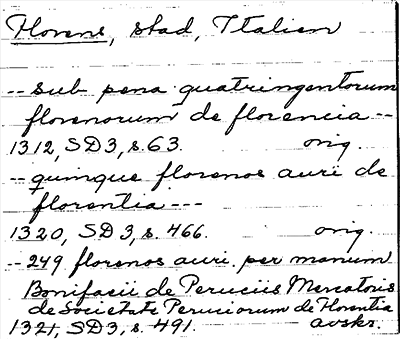 Florens, stad, Italien
-- sub pena quatringentorum
florenorum de florencia --
1312, SD3, s. 63. orig.
-- quinque florenos auri de
florentia ---
1320, SD3, s. 466. orig.
-- 249 florenos auri per manum
Bonifacii de Peruciis Mercatoris
de Societate Peruciorum de Florentia
1321, SD3, s. 491. avskr.